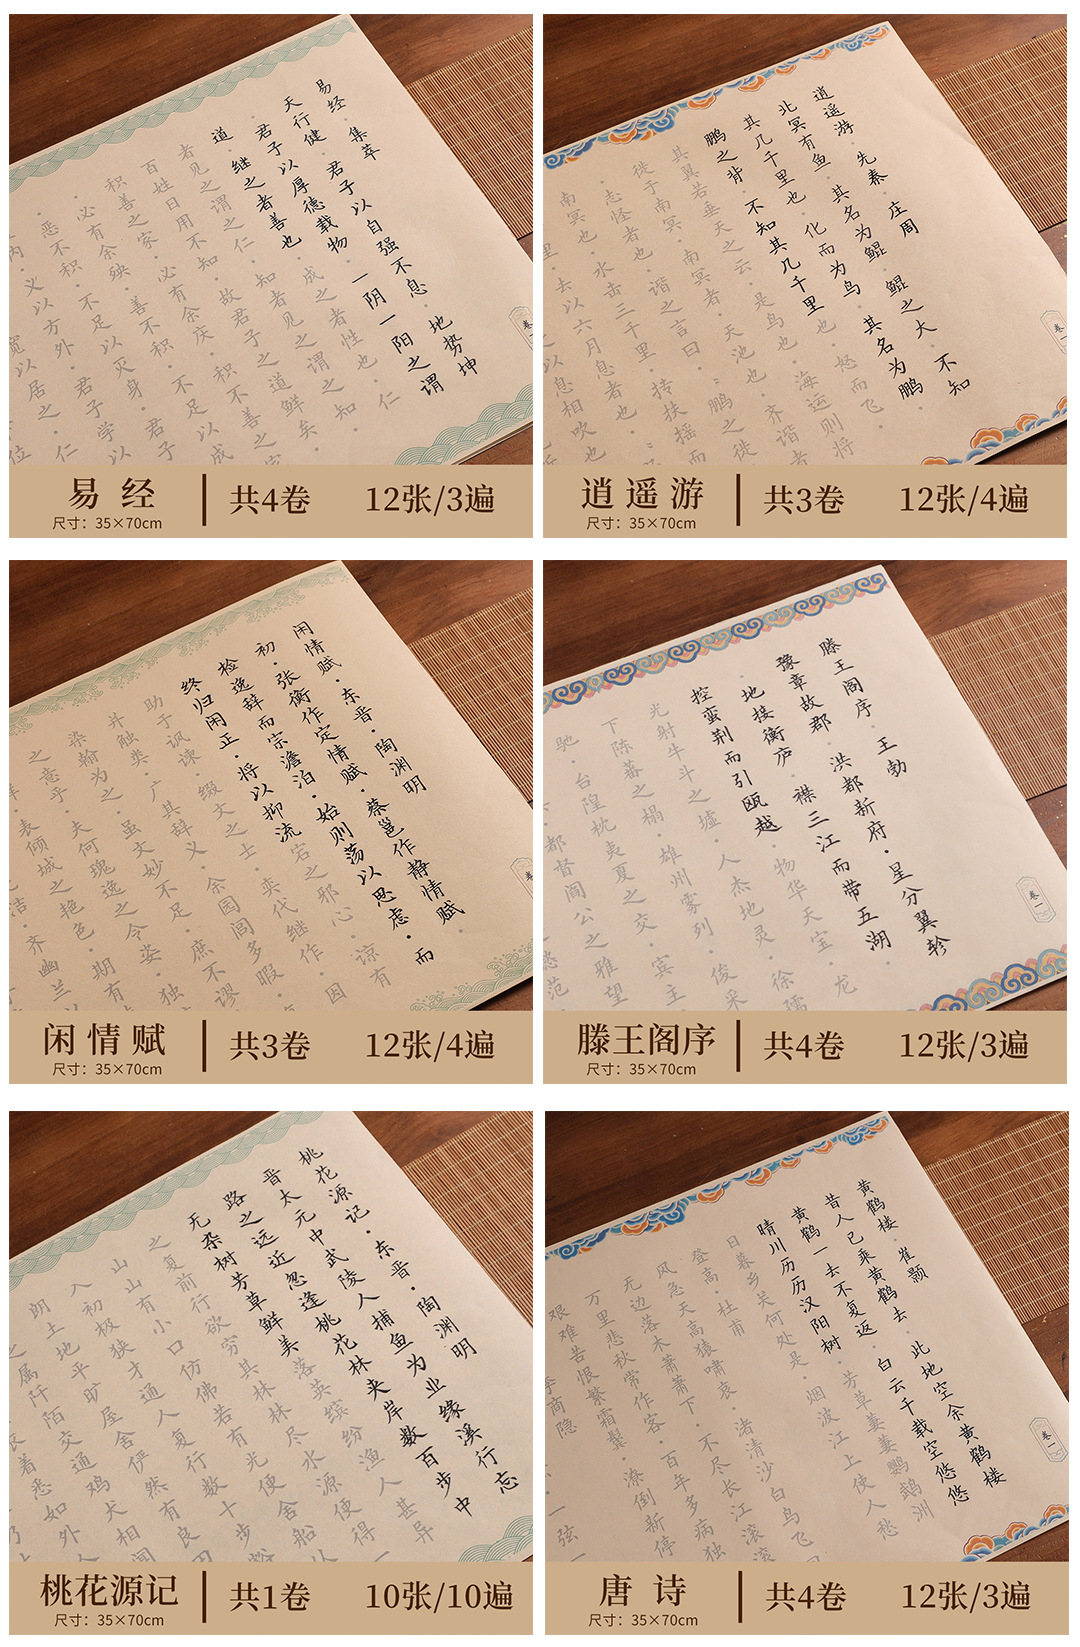 易经·集萃
天行健·君子以自强不息·地势坤
君子以厚德载物·一阴一阳之谓
道·继之者善也·成之者性也·仁
者见之谓之仁·知者见之谓之知·
百姓日用不知·故君子之道鲜矣·
积善之家·必有余庆·积不善之家
必有余殃·善不积·不足以成
恶不积·不足以灭身·君子
义以方外·君子学以
宽以居之·仁
卷一
易经
共4卷
12张/3遍
尺寸：35×70cm
逍遥游·先秦·庄周
北冥有鱼·其名为鲲·鲲之大·不知
其几千里也·化而为鸟·其名为鹏
鹏之背·不知其几千里也·怒而飞·
其翼若垂天之云·是鸟也·海运则将
徙于南冥·南冥者·天池也·齐谐者
志怪者也·谐之言曰·鹏之徙
南冥也·水击三千里·抟扶摇而
去以六月息者也·
以息相吹也·
卷一
逍遥游
共3卷
12张/4遍
尺寸：35×70cm
闲情赋·东晋·陶渊明
初·张衡作定情赋·蔡邕作静情赋·
检逸辞而宗澹泊·始则荡以思虑·而
终归闲正·将以抑流宕之邪心·谅有
助于讽谏·缀文之士·奕代继作·因
并触类·广其辞义·余园闾多暇·
染翰为之·虽文妙不足·庶不谬
之意乎·夫何瑰逸之令姿·独
表倾城之艳色·期有
洁·齐幽兰以
闲情赋
共3卷
12张/4遍
尺寸：35×70cm
滕王阁序·王勃
豫章故郡·洪都新府·星分翼轸
地接衡庐·襟三江而带五湖·
控蛮荆而引瓯越·物华天宝·龙
光射牛斗之墟·人杰地灵·徐孺
下陈蕃之榻·雄州雾列·俊采
驰·台隍枕夷夏之交·宾主
都督阎公之雅望
懿范
卷一
滕王阁序
共4卷
12张/3遍
尺寸：35×70cm
桃花源记·东晋·陶渊明
晋太元中武陵人捕鱼为业缘溪行忘
路之远近忽逢桃花林夹岸数百步中
无杂树芳草鲜美落英缤纷渔人甚异
之复前行欲穷其林林尽水源便得一
山山有小口仿佛若有光便舍船从
入初极狭才通人复行数十步豁
朗土地平旷屋舍俨然有良田
属阡陌交通鸡犬相闻
着悉如外人
桃花源记
共1卷
10张/10遍
尺寸：35×70cm
黄鹤楼·崔颢
昔人已乘黄鹤去·此地空余黄鹤楼
黄鹤一去不复返·白云千载空悠悠
晴川历历汉阳树·芳草萋萋鹦鹉洲
日暮乡关何处是·烟波江上使人愁
登高·杜甫
风急天高猿啸哀·渚清沙白鸟飞
无边落木萧萧下·不尽长江滚滚
万里悲秋常作客·百年多病独
艰难苦恨繁霜鬓·潦倒新停
李商隐
一弦一
卷一
唐诗
共4卷
12张/3遍
尺寸：35×70cm